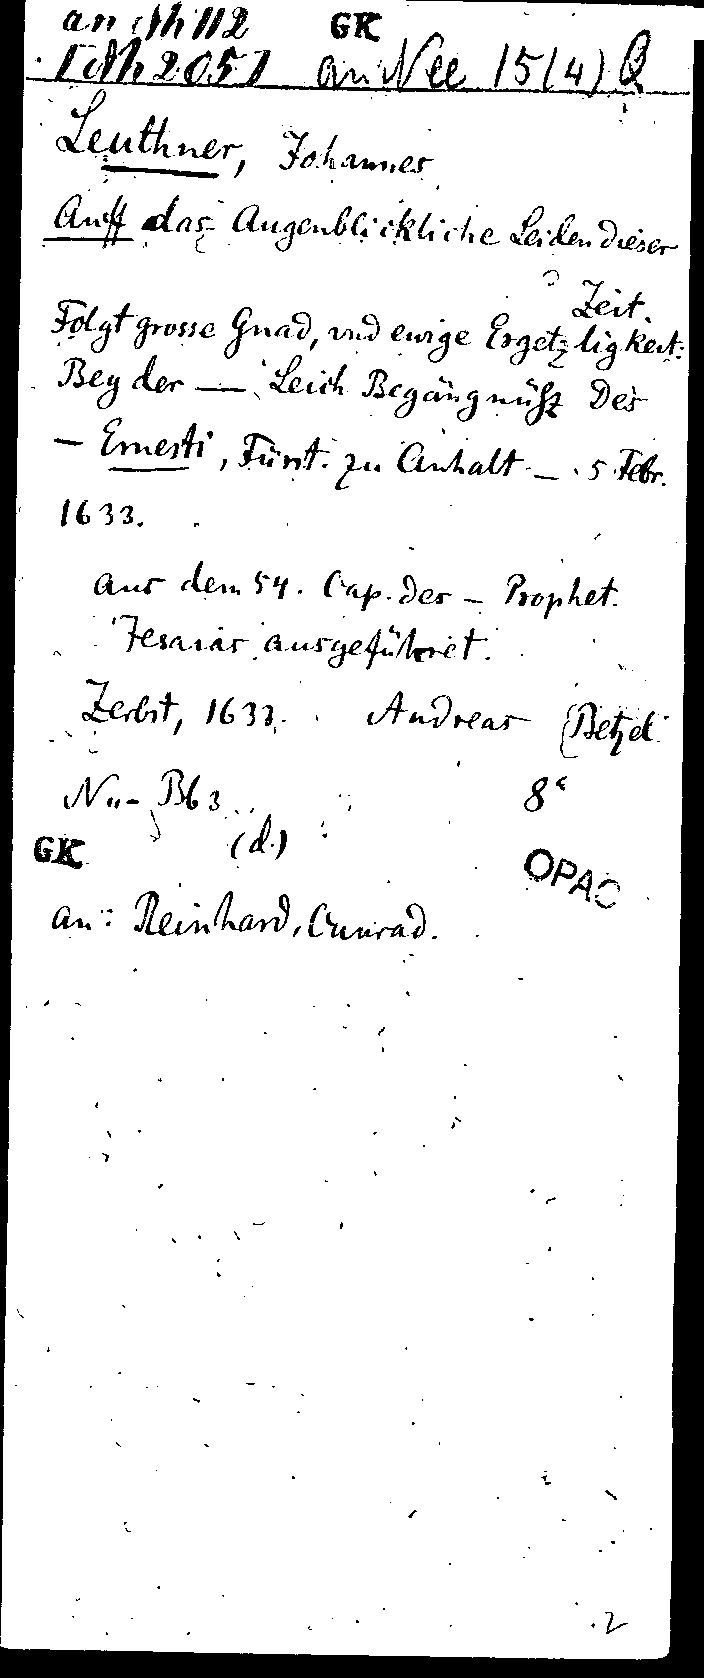 GK
an Nee 15(4) Q
Leuthner, Johannes
Auff das Augenblickliche Leiden dieser
Zeit.
Folgt grosse Gnad, vnd ewige Ergetzligkeit:
Bey der — Leich Begängnüsz Des
— Ernesti, Fürst. zu Anhalt — 5 Febr.
1633.
aus dem 54. Cap. des — Prophet.
Jesaias ausgeführet.
Zerbst, 1633. Andreas Betzel
8°
GK (d.)
OPAC
an: Reinhard, Cunrad.
2